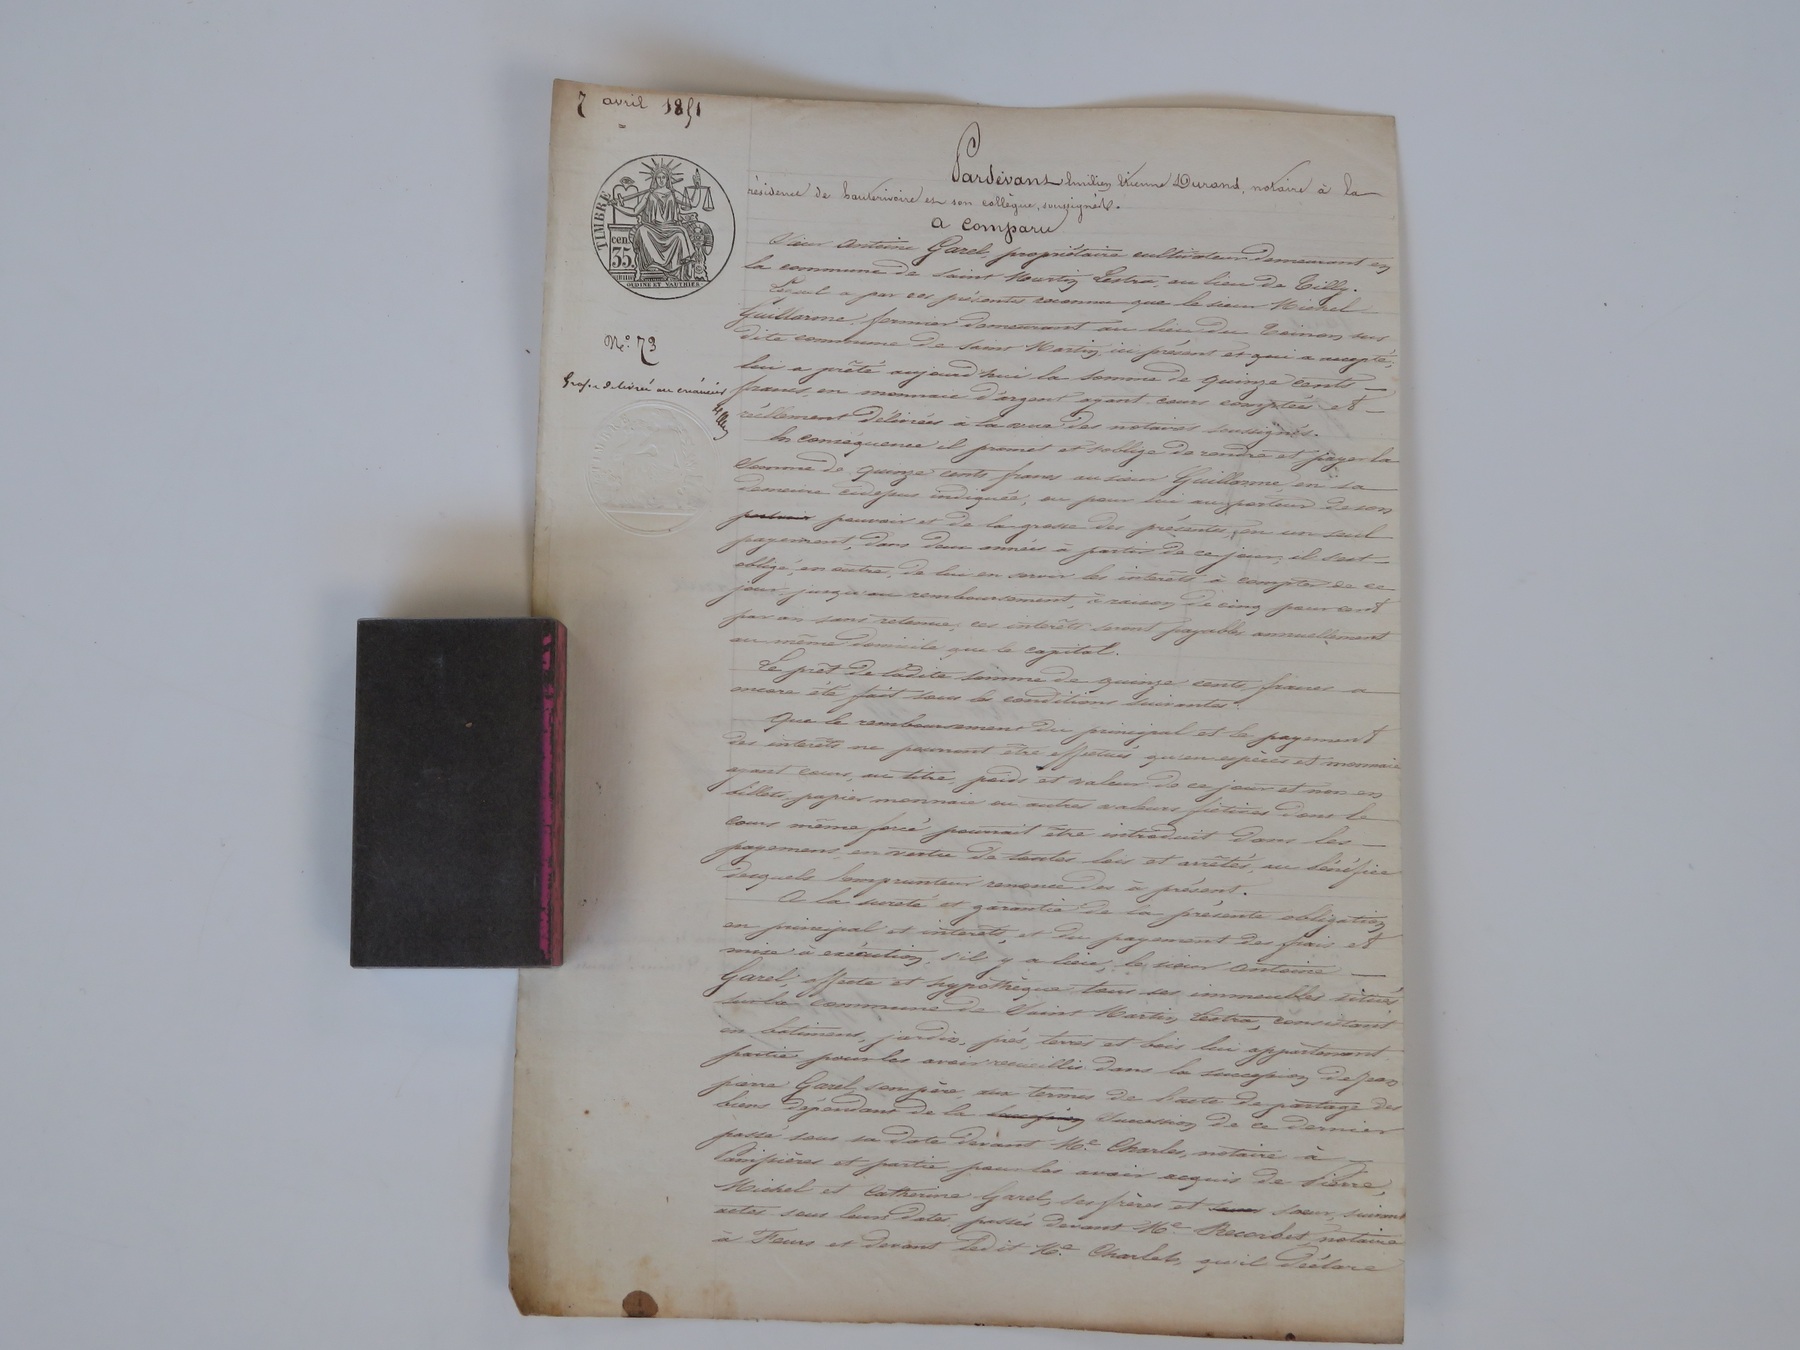 7 avril 1851
TIMBRE
cen.
35.
ORDINE ET VAUTHIER.
No. 73
Grosse délivrée au créancier
Pardevant Emilien Etienne Durand, notaire à la
résidence de hauterivoire et son collègue, soussignés.
A comparu
Sieur Antoine Garel, propriétaire cultivateur demeurant en
la commune de Saint Martin Lestra, au lieu de Tilly.
Lequel a par ces présentes reconnu que le sieur Michel
Guillarme, fermier demeurant au lieu du sus
dite commune de Saint Martin, ici présent et qui a accepté,
lui a prêté aujourd'hui la somme de quinze cents
francs, en monnaie d'argent ayant cours comptées et
réellement délivrées à la vue des notaires soussignés.
En conséquence il promet et s'oblige de rendre et payer la
somme de quinze cents francs au sieur Guillarme, en sa
demeure cidessus indiquée, ou pour lui au porteur de son
pouvoir et de la grosse des présentes, en un seul
payement, dans deux années à partir de ce jour, il s'est
obligé, en outre, de lui en servir les intérêts à compter de ce
jour jusqu'au remboursement, à raison de cinq pour cent
par an sans retenue, ces intérêts seront payables annuellement
au même domicile que le capital.
Le prêt de ladite somme de quinze cents francs a
encore été fait sous les conditions suivantes.
Que le remboursement du principal et le payement
des intérêts ne pourront être effectués qu'en espèces et monnaie
ayant cours, au titre, poids et valeur de ce jour et non en
billets, papier monnaie ou autres valeurs fictives dont le
cours même forcé pourrait être introduit dans les
payemens, en vertu de toutes lois et arrêtés, au bénéfice
desquels l'emprunteur renonce dès à présent.
A la sureté et garantie de la présente obligation,
en principal et intérêts, et du payement des frais et
mise à exécution, s'il y a lieu, le sieur Antoine
Garel, affecte et hypothèque tous ses immeubles situés
sur la commune de Saint Martin Lestra, consistant
en bâtimens, jardin, prés, terres et bois lui appartenant
partie pour les avoir recueillis dans la succession de Jean
pierre Garel, son père, aux termes de l'acte de partage des
biens dépendans de la succession de ce dernier
passé sous sa date devant Me. Charles, notaire à
et partie pour les avoir acquis de Pierre,
Michel et Catherine Garel, ses frères et soeur, suivant
actes sous leurs dates passés devant Me. Recorbet, notaire
à Feurs et devant ledit Me. Charles, qu'il déclare